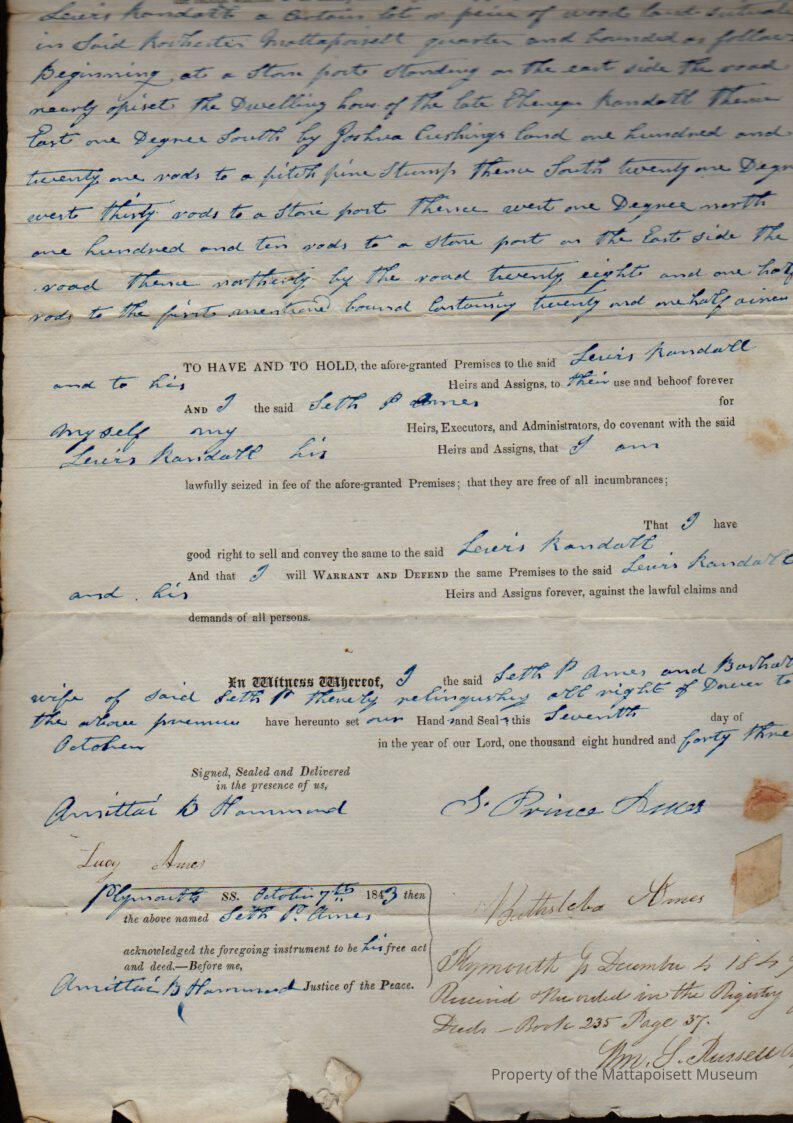 Lewis Randall a certain lot or peice of wood land situate
in Said Rochester Mattapoisett quarter and bounded as follows
Beginning at a Stone post Standing on the east side the road
nearly opiset the Dwelling hous of the late Randall Thence
East one Degree South by Joshua Cushings land one hundred and
twenty one rods to a pitch pine Stump thence South twenty one Degr
west thirty rods to a Stone post Thence west one Degree north
one hundred and ten rods to a Stone post on the East side the
road thence northerly by the road twenty eight and one half
rods to the first mentioned bound Containing twenty and one half
TO HAVE AND TO HOLD, the afore-granted Premises to the said Lewis Randall
and to his Heirs and Assigns, to their use and behoof forever
AND I the said Seth P Ames for
myself my Heirs, Executors, and Administrators, do covenant with the said
Lewis Randall his Heirs and Assigns, that I am
lawfully seized in fee of the afore-granted Premises; that they are free of all incumbrances;
That I have
good right to sell and convey the same to the said Lewis Randall
And that I will WARRANT AND DEFEND the same Premises to the said Lewis Randall
and his Heirs and Assigns forever, against the lawful claims and
demands of all persons.
In Witness Whereof, I the said Seth P Ames and
wife of said Seth P thereby relinquishing all right of Dower to
the above premises have hereunto set our Hand and Seal this Seventh day of
October in the year of our Lord, one thousand eight hundred and forty three
Signed, Sealed and Delivered
in the presence of us,
Amittai B Hammond S. Prince Ames
Lucy Ames
Plymouth SS. October 7th 1843 then
the above named Seth P. Ames
acknowledged the foregoing instrument to be his free act
and deed.—Before me,
Amittai B Hammond Justice of the Peace.
Bathsheba Ames
Plymouth December 4 1849
Received & Recorded in the Registry
Deeds – Book 235 Page 37.
Wm. S. Russell
Property of the Mattapoisett Museum